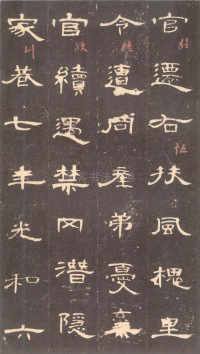 官遷右扶風槐里
令遭同產弟憂棄
官續遇禁网潛隱
家巷七年光和六